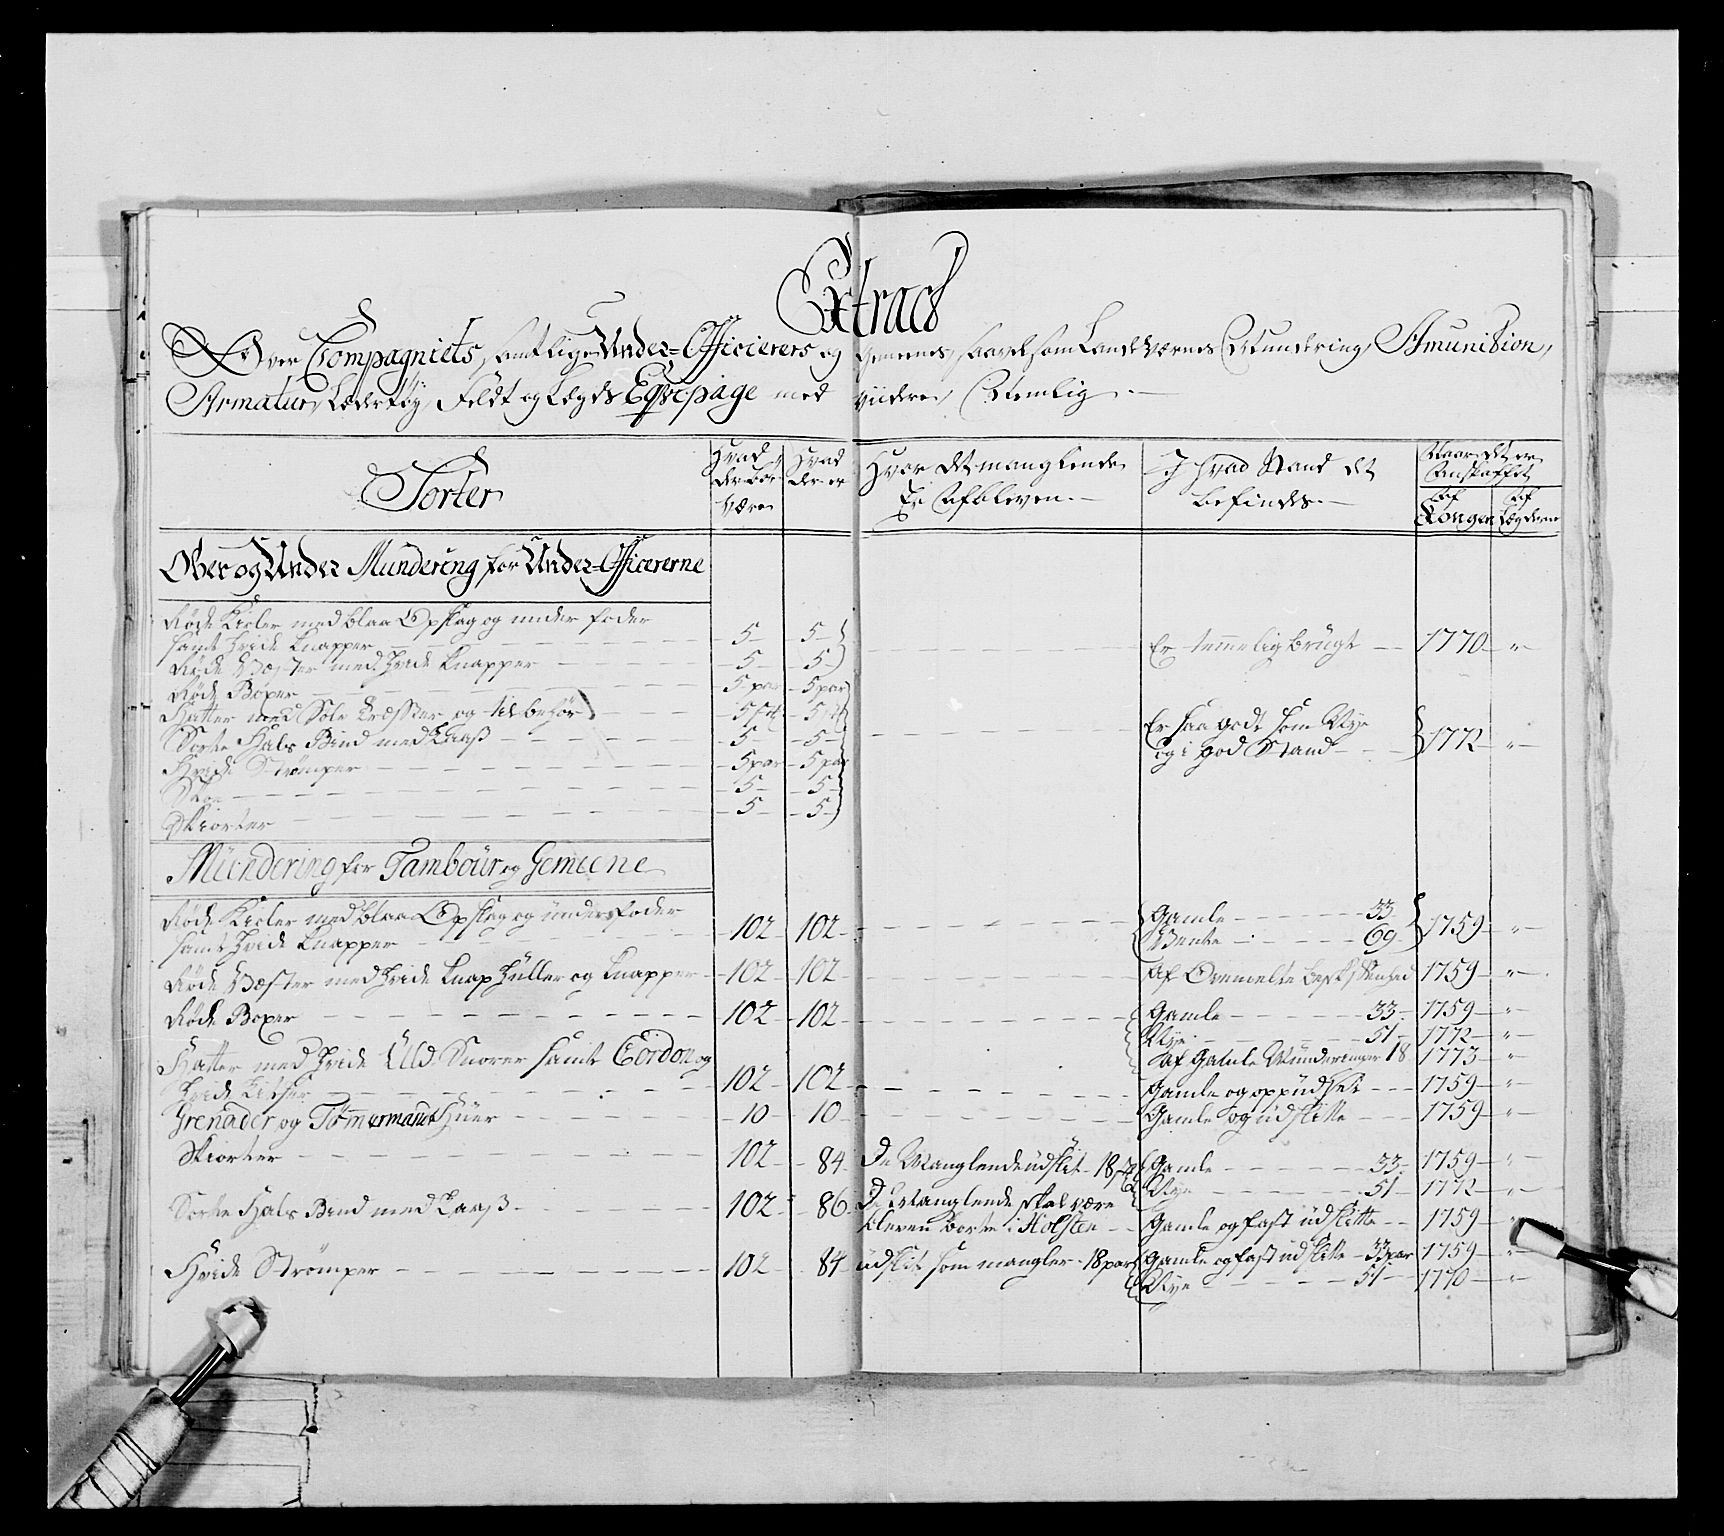 Extract
Over Compagniets, samtlige Under-Officierers og Gemeenes, saavelsom Landeværnes Mundering, Amunision,
Armatur, Lædertøy, Feldt og Lægds Eqvipage med viidere Nemlig
Sorter
Hvad der bør være
Hvad der er
Hvor det manglende Er Afbleven.
I hvad Stand det befindes.
Naar det er Anskaffet
Af Kongen
Af Lægderne
Ober og Under Mundering for Under-Officererne
Røde Kioler med blaa Opslag og under foder
samt hvide Knapper 5 5 Er temmelig brugt 1770 "
Røde Væster med hvide Knapper 5 5
Røde Boxer 5 par 5 par
Hatter med Sølv Tresser og tilbehør 5 st 5 st Er saa godt som Nye
Sorte Hals Bind med Laaß 5 5 og i god Stand 1772 "
Hvide Strømper 5 par 5 par
Skoe 5 5
Skiorter 5 5
Mündering for Tambour og Gemeene
Røde Kioler med blaa Opslag og under foder Gamle 33
samt hvide Knapper 102 102 Bente 69 1759 "
Røde Væster med hvide Knaphuller og Knapper 102 102 Af Ovenmelte 1759 "
Røde Boxer 102 102 Gamle 33 1759 "
Nye 51 1772 "
Af Gamle Munderinger 18 1773 "
Hatter med hvide Uld Snorer samt Cordon og
hvide 102 102 Gamle og opudset 1759 "
Grenader og Tømmermands Huer 10 10 Gamle og udslitte 1759 "
Skiorter 102 84 De Manglende udslit 18 st Gamle 33 1759 "
Nye 51 1772 "
Sorte Hals Bind med Laaß 102 86 De Manglende skal være
bleven borte i Holsten Gamle og fast udslitte 1759 "
Hvide Strømper 102 84 udslit som mangler 18 par Gamle og fast udslitte 33 par 1759 "
Nye 51 1770 "